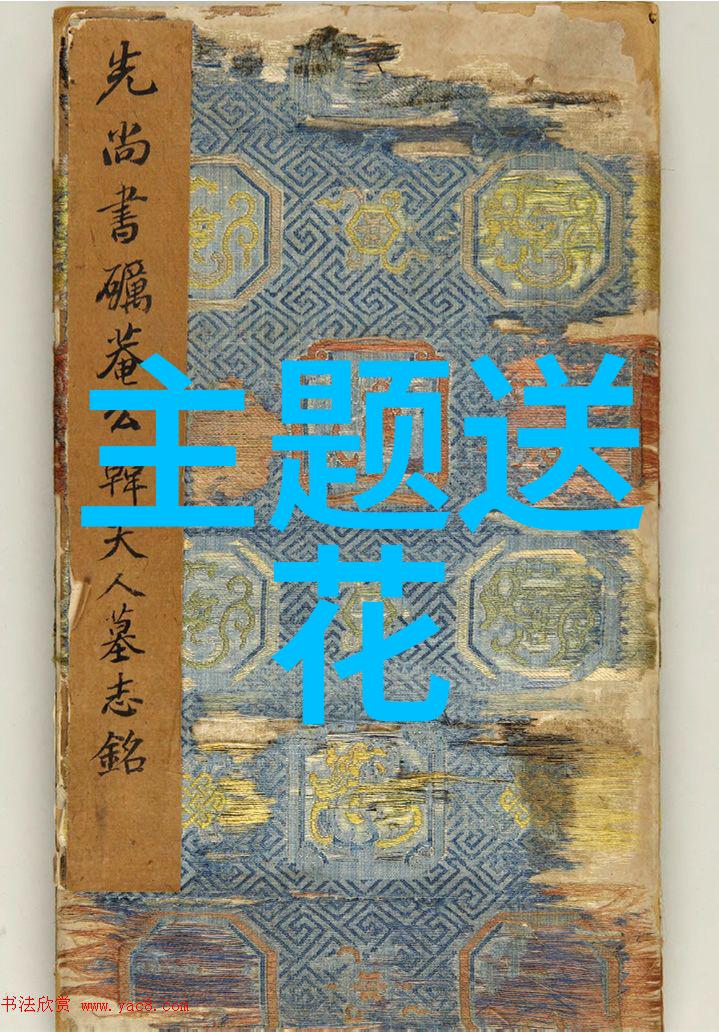 先尚書礪菴公韓夫人墓志銘
主题送
花
书法欣赏 www.yac8.com